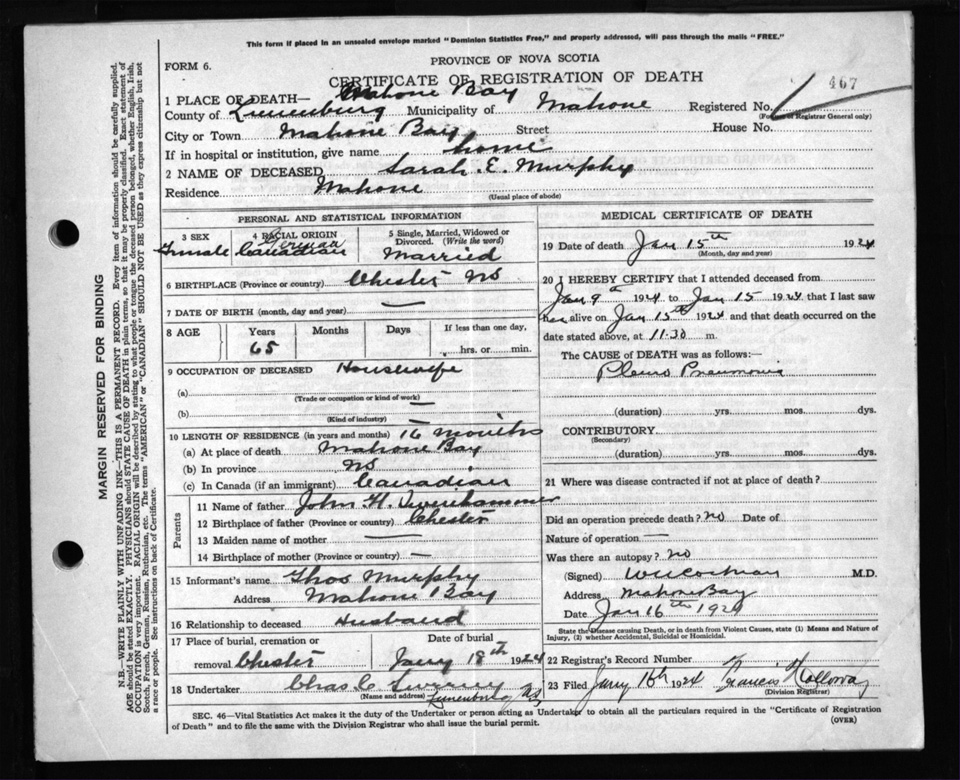 This form if placed in an unsealed envelope marked "Dominion Statistics Free," and properly addressed, will pass through the mails "FREE."
FORM 6.
PROVINCE OF NOVA SCOTIA
CERTIFICATE OF REGISTRATION OF DEATH
467
1 PLACE OF DEATH— Mahone Bay
County of Lunenburg Municipality of Mahone Registered No.
(For use of Registrar General only)
City or Town Mahone Bay Street House No.
If in hospital or institution, give name home
2 NAME OF DECEASED Sarah. E. Murphy
Residence Mahone
(Usual place of abode)
PERSONAL AND STATISTICAL INFORMATION
3 SEX 4 RACIAL ORIGIN 5 Single, Married, Widowed or Divorced. (Write the word)
German
Female Canadian Married
6 BIRTHPLACE (Province or country) Chester NS
7 DATE OF BIRTH (month, day and year) —
8 AGE Years Months Days If less than one day,
65 hrs. or min.
9 OCCUPATION OF DECEASED Housewife
(a)
(Trade or occupation or kind of work)
(b) —
(Kind of industry)
10 LENGTH OF RESIDENCE (in years and months) 16 months
(a) At place of death Mahone Bay
(b) In province NS
(c) In Canada (if an immigrant) Canadian
Parents
11 Name of father John H.
12 Birthplace of father (Province or country) Chester
13 Maiden name of mother —
14 Birthplace of mother (Province or country) —
15 Informant's name Thos Murphy
Address Mahone Bay
16 Relationship to deceased Husband
17 Place of burial, cremation or removal Chester
Date of burial
Jany 18th 1924
18 Undertaker Chas C
(Name and address) Lunenburg NS
MEDICAL CERTIFICATE OF DEATH
19 Date of death Jan 15th 1924
(Month, day and year)
20 I HEREBY CERTIFY that I attended deceased from
Jan 9th 1924 to Jan 15 1924 that I last saw
her alive on Jan 15th 1924 and that death occurred on the
date stated above, at 11.30 m.
The CAUSE OF DEATH was as follows:—
Pleuro Pneumonia
(duration) yrs. mos. dys.
CONTRIBUTORY
(Secondary)
(duration) yrs. mos. dys.
21 Where was disease contracted if not at place of death?
Did an operation precede death? no Date of
Nature of operation —
Was there an autopsy? no
(Signed) M.D.
Address Mahone Bay
Date Jan 16th 1924
State the Disease causing Death, or in death from Violent Causes, state (1) Means and Nature of Injury, (2) whether Accidental, Suicidal or Homicidal.
22 Registrar's Record Number
23 Filed Jany 16th 1924 Francis
(Division Registrar)
SEC. 46—Vital Statistics Act makes it the duty of the Undertaker or person acting as Undertaker to obtain all the particulars required in the "Certificate of Registration
of Death" and to file the same with the Division Registrar who shall issue the burial permit.
(OVER)
MARGIN RESERVED FOR BINDING
N.B.—WRITE PLAINLY WITH UNFADING INK—THIS IS A PERMANENT RECORD. Every item of information should be carefully supplied.
AGE should be stated EXACTLY. PHYSICIANS should STATE CAUSE OF DEATH in plain terms, so that it may be properly classified. Exact statement of
OCCUPATION is very important. RACIAL ORIGIN will be described by stating to what people or tongue the deceased person belonged, whether English, Irish,
Scotch, French, German, Russian, Ruthenian, etc. The terms "AMERICAN" or "CANADIAN" SHOULD NOT BE USED as they express citizenship but not
a race or people. See instructions on back of Certificate.